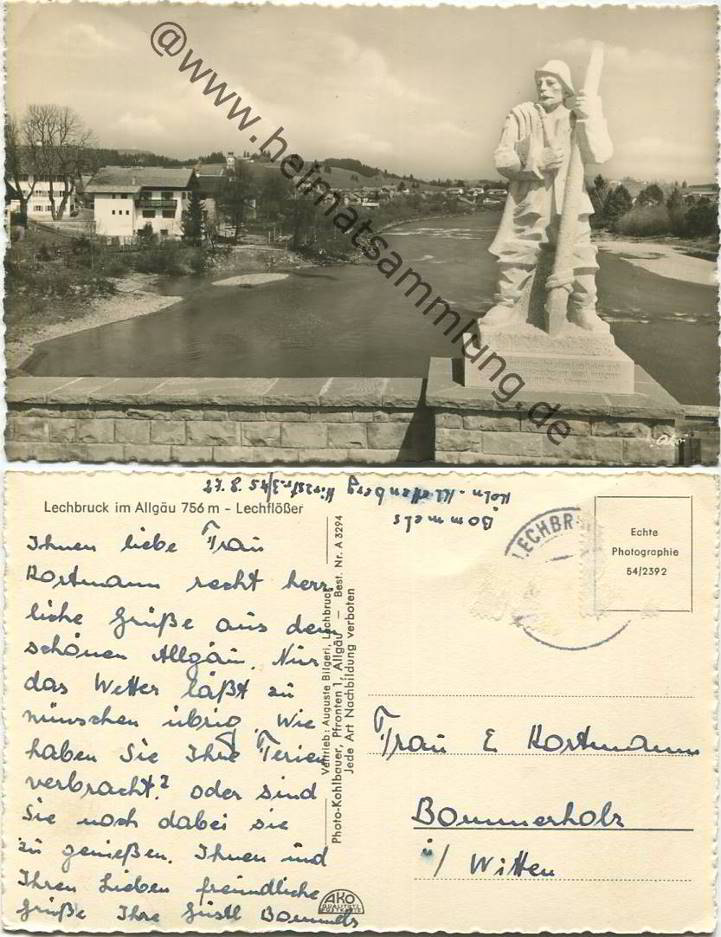 @www.heimatsammlung.de
Ako
Lechbruck im Allgäu 756 m - Lechflößer
Bommels
Köln-Klettenberg Hirzstr. 3/45 8.72
LECHBR
Echte
Photographie
54/2392
Ihnen liebe Frau
Kortmann recht herz
liche Grüße aus dem
schönen Allgäu. Nur
das Wetter läßt zu
wünschen übrig. Wie
haben Sie Ihre Ferien
verbracht? oder sind
Sie noch dabei sie
zu genießen. Ihnen und
Ihren Lieben freundliche
Grüße Ihre Gustl Bommels
Vertrieb: Auguste Bilgeri, Lechbruck
Photo-Kohlbauer, Pfronten 1, Allgäu — Best. Nr. A 3294
Jede Art Nachbildung verboten
AKO
QUALITÄTS
POSTKARTE
Frau E Kortmann
Bommerholz
i/ Witten